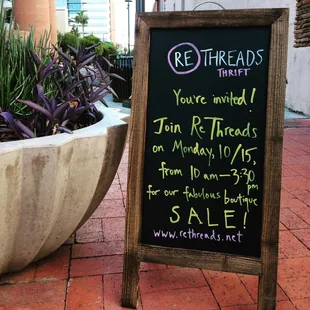 RE THREADS
THRIFT
You're invited!
Join ReThreads
on Monday, 10/15,
from 10 am-3:30 pm
for our fabulous boutique
SALE!
www.rethreads.net